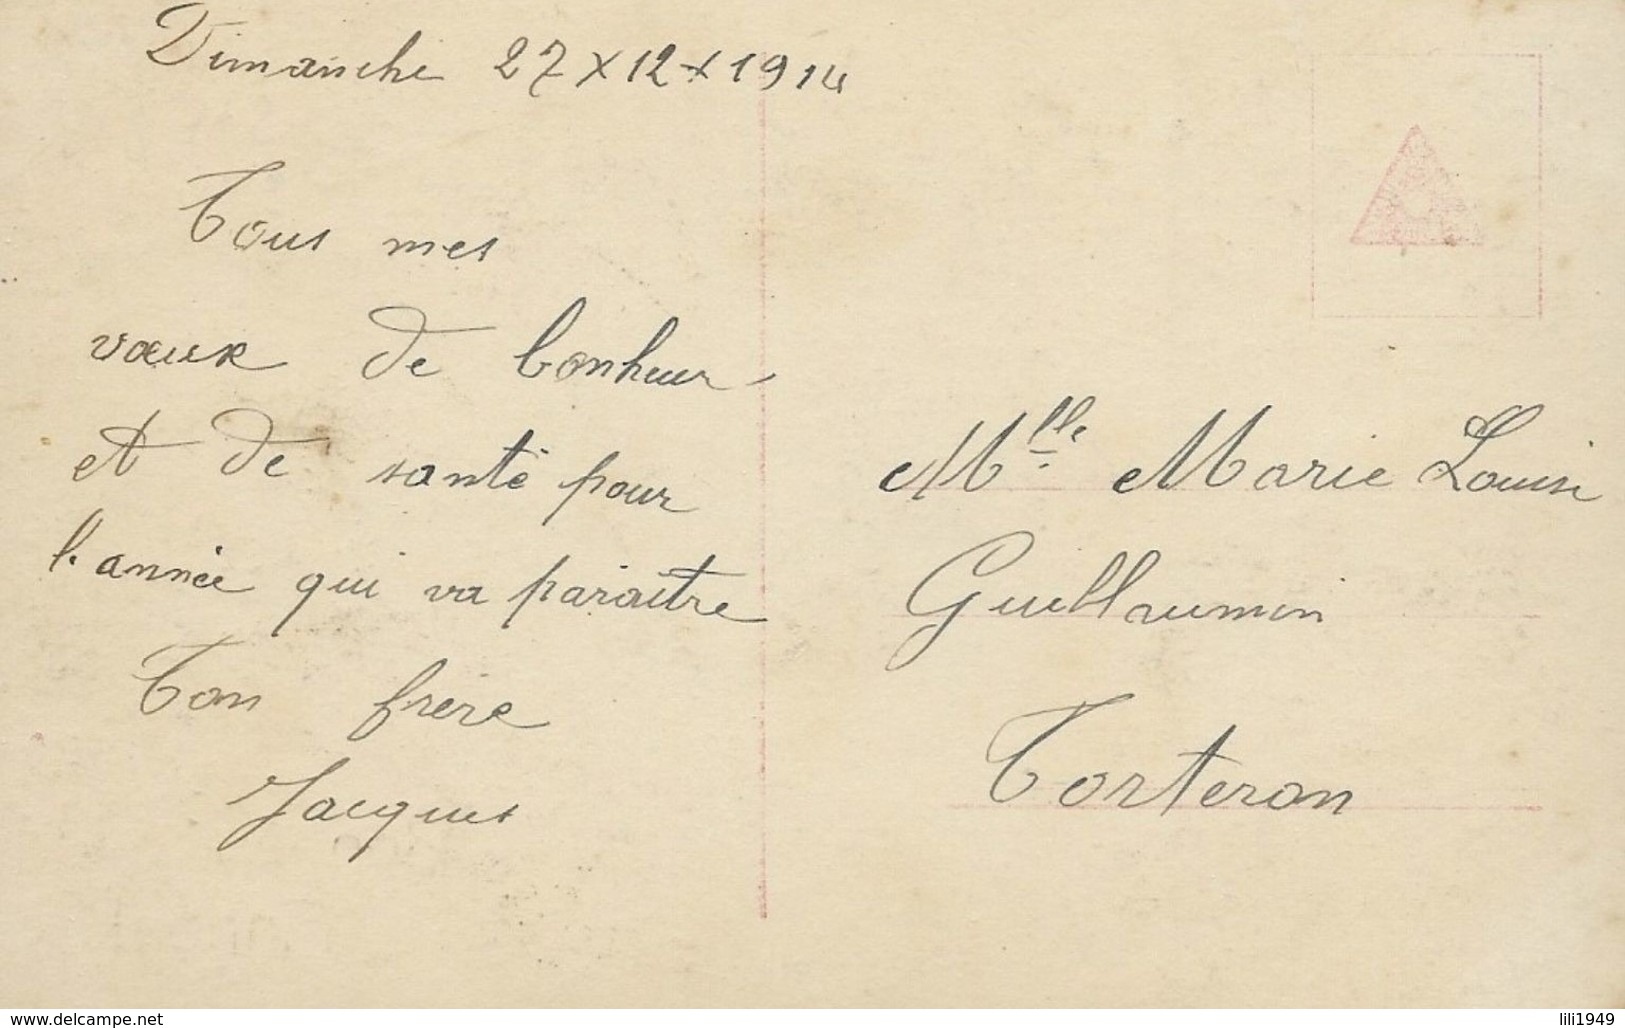 Dimanche 27 x 12 x 1914
Tous mes
vœux de bonheur
et de santé pour
l'année qui va paraitre
Ton frère
Jacques
Mlle Marie Louise
Guillaumin
Torteron
www.delcampe.net
lili1949